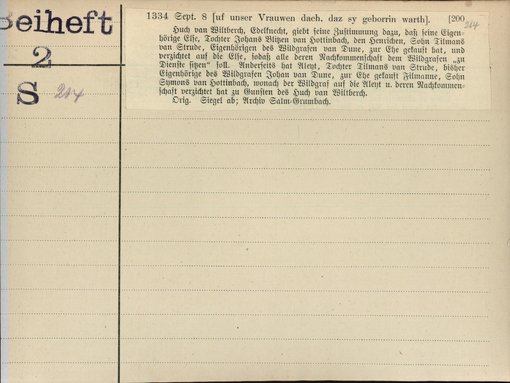 Beiheft
2
S 264
1334 Sept. 8 [uf unser Vrauwen dach, daz sy geborrin warth]. [200
264
Huch van Wiltberch, Edelknecht, giebt seine Zustimmung dazu, daß seine Eigen-
hörige Else, Tochter Johans Blitzen van Hottinbach, den Henrichen, Sohn Tilmans
van Strude, Eigenhörigen des Wildgrafen van Dune, zur Ehe gekauft hat, und
verzichtet auf die Else, sodaß alle deren Nachkommenschaft dem Wildgrafen „zu
Dienste sitzen“ soll. Anderseits hat Aleyt, Tochter Tilmans van Strude, bisher
Eigenhörige des Wildgrafen Johan van Dune, zur Ehe gekauft Filmanne, Sohn
Symons van Hottinbach, wonach der Wildgraf auf die Aleyt u. deren Nachkommen-
schaft verzichtet hat zu Gunsten des Huch van Wiltberch.
Orig. Siegel ab; Archiv Salm-Grumbach.